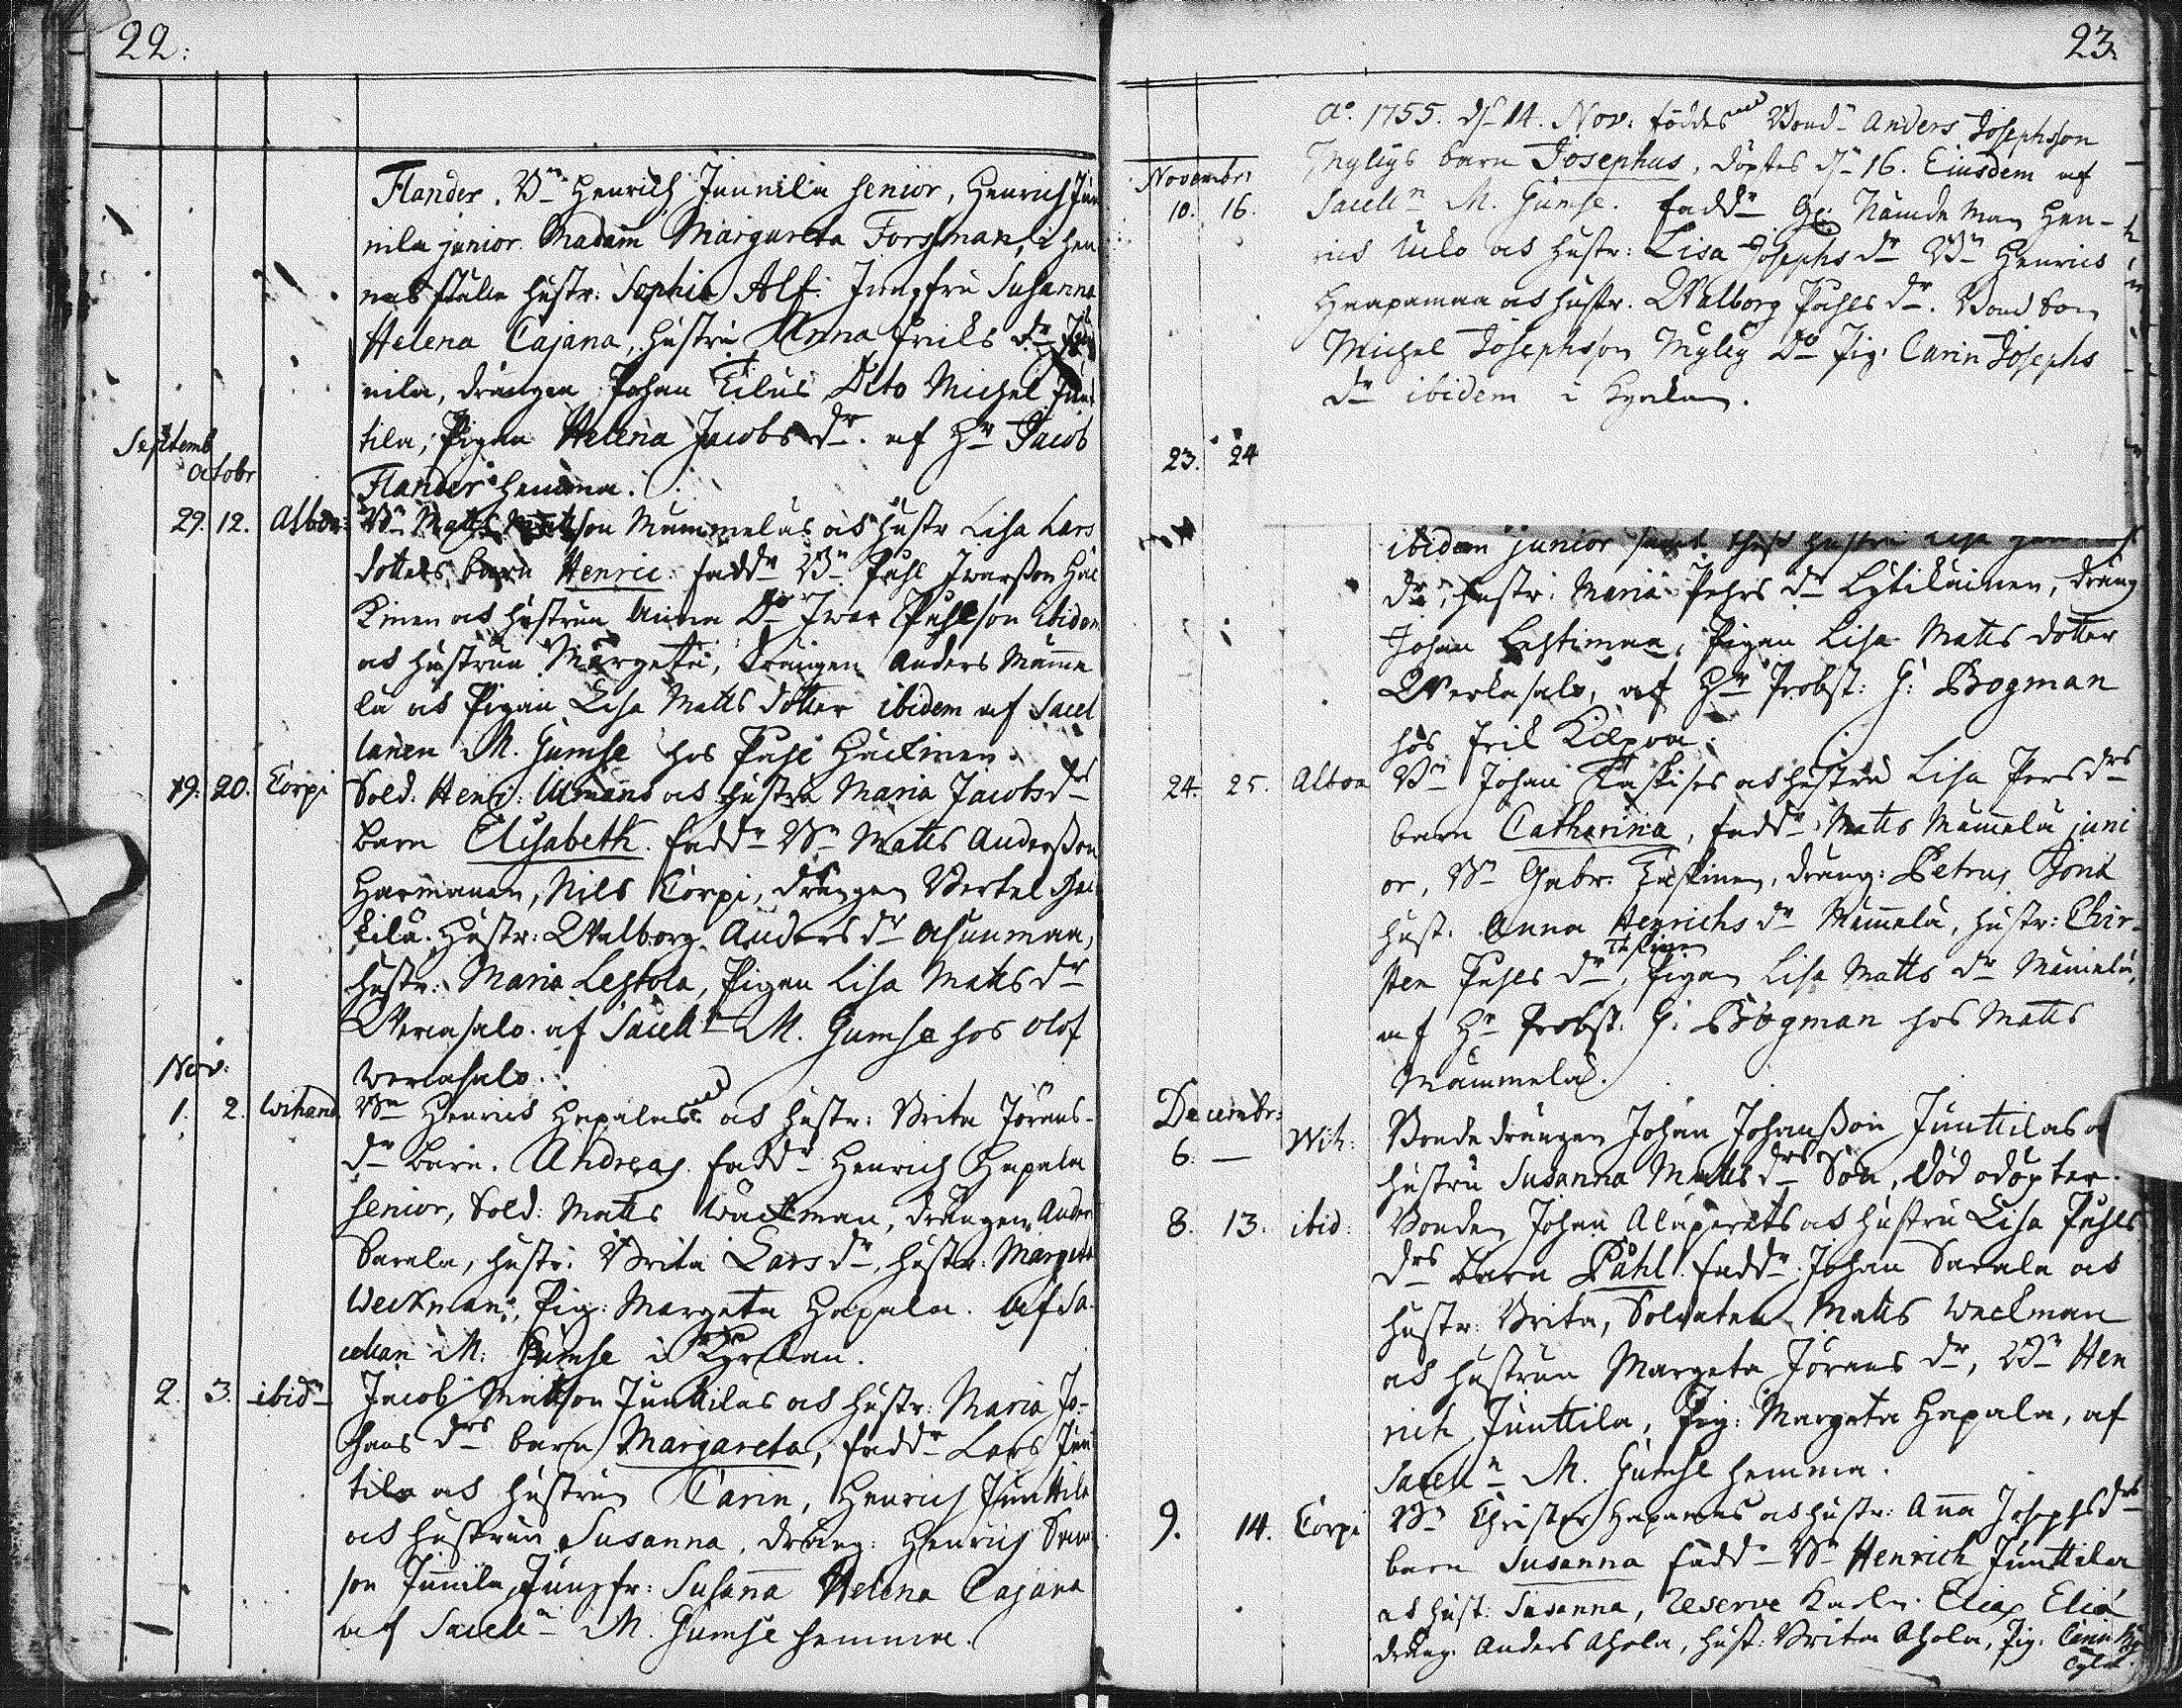 22:
Flander. Bn Henrich Junnila senior, Henrich Jun
nila junior. Madam Margareta Forsman, i hen
nas ställe hustr: Sophia Alf. Jungfru Susanna
Helena Cajana, hustru Anna Eriks dr Jun
nila, drängen Johan Eilus Dito Michel Jun
tila, Pigan Helena Jacobs dr. af Hr Jacob
Septemb
octobr
Flander hemma.
29. 12. Albon: Bn Matts son Mummelas as hustr Lisa Lars
dotters barn Henric: fadd Bn Påhl Iwarsson Häc
kinen as hustrun Anna Do Iwar Påhlson ibidem
as hustrun Margeta, drängen Anders Mämme
lä as Pigan Lisa Matts dotter ibidem af Sacel
lanen M. Gumse hos Påhl Häckinen.
19. 20. Corpi Sold. Henr: Ulmans as hustru Maria Jacobs drs
barn Elisabeth. fadd Bn Matts Andersson
Harmanen, Nils Corpi, drängen Bertel
kilä. Hustr: Walborg Anders dr Asunmaa,
hustr: Maria Lehtola, Pigan Lisa Matts dr
Wercasalo. af Sacell M. Gumse hos Olof
Wercasalo.
Nov:
1. 2. Wihand Bn Henrics Hapalas as hustr: Brita Jörans-
dr barn. Andreas. fadd Henrich Hapala
senior, Sold: Matts Wäckman, drängen Anders
Sarala, hustr: Brita Lars dr, hustr: Margeta
Weckman, Pig: Margeta Hapala. af Sa
cellan M: Gumse i Kyrckan.
2. 3. ibidm Jacob Mattson Junttilas as hustr: Maria Jo-
hans drs barn Margareta, fadd Lars Jun
tila as hustrun Carin, Henrich Junttila
as hustrun Susanna, dräng: Henrich
son Junnila, Jungfr: Susanna Helena Cajana
af Sacell M. Gumse hemma.
23.
Ao. 1755. dn 14. Nov: föddes Bond. Anders Josephsson
Mylys barn Josephus, döptes dn 16. Eiusdem af
Novembr:
10. 16. Sacelln M. Gumse. fadd Nämdeman Hen-
rics Ulo as hustr: Lisa Josephs dr Bn Henrics
Haapamaa as hustr. Walborg Påhls dr. Bondson
Michel Josephsson Myly Do Pig: Carin Josephs
dr ibidem i Kyrckan.
23. 24
ibidem junior samt thess hustru Lisa
dr, hustr: Maria Pehrs dr Lytikäinen, dräng
Johan Lehtimaa, Pigan Lisa Matts dotter
Werkasalo, af Hr Probst: G: Bogman
hos Erik Kilpoa.
24. 25. Alboa Bn Johan Taskises as hustru Lisa Pers drs
barn Catharina, fadd Matts Mämmelä juni
or, Bn Gabr: Taskinen, dräng: Petrus
hust. Anna Henrichs dr Mämmelä, hustr: Chir-
sten Påhls dr, Pigan Lisa Matts dr Mämmelä,
af Hr Probst. G: Bogman hos Matts
Mämmelä.
Decembr:
6. — Wih: Bonde drängen Johan Johansson Junttilas as
hustru Susanna Matts drs Son, död odöpter.
8. 13. ibid: Bonden Johan Alaperets as hustru Lisa Påhls
drs barn Påhl. fadd Johan Sarala as
hustr: Brita, Soldaten Matts Weckman
as hustrun Margeta Jörans dr, Bn Hen
rich Junttila, Pig: Margeta Hapala, af
Sacelln M. Gumse hemma.
9. 14. Corpi Bn Christer Hapanas as hustr: Anna Josephs drs
barn Susanna fadd Bn Henrich Junttila
as hust: Susanna, Reserve Karln: Elias Eliä
dräng: Anders Ahola, hust: Brita Ahola, Pig: